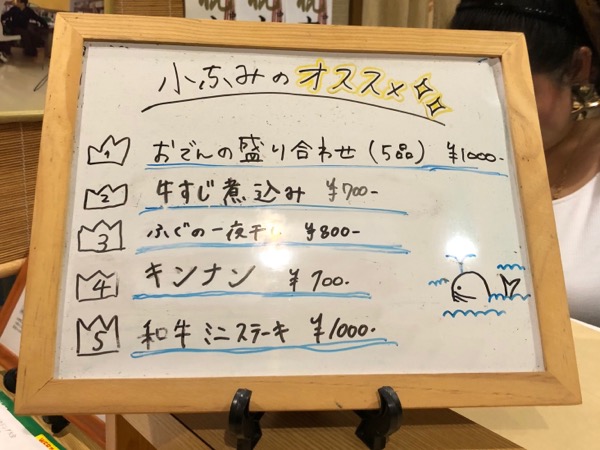 小ふみのオススメ
1 おでんの盛り合わせ(5品) ¥1000-
2 牛すじ煮込み ¥700-
3 ふぐの一夜干し ¥800-
4 キンナン ¥700-
5 和牛ミニステーキ ¥1000-